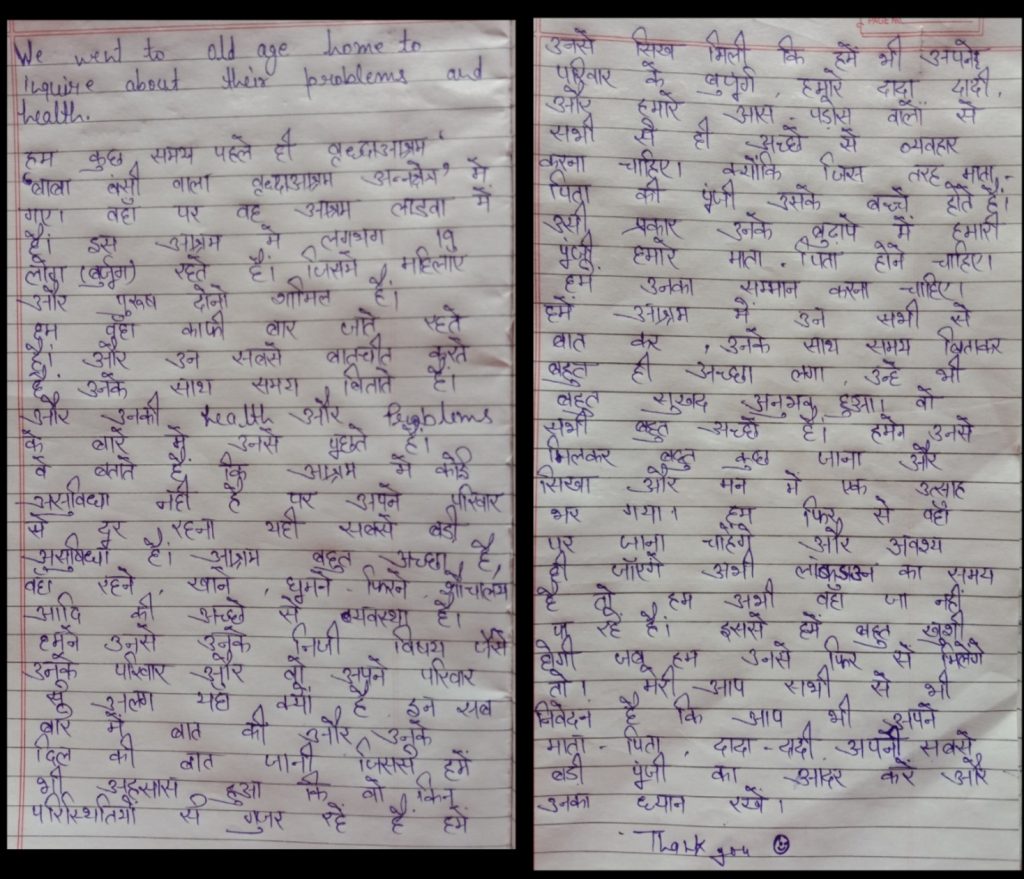 We went to old age home to
inquire about their problems and
health.
हम कुछ समय पहले ही वृद्धाआश्रम
"बाबा बंसी वाला वृद्धाआश्रम अन्नक्षेत्र" में
गए। वहां पर वह आश्रम लाडवा में
है। इस आश्रम में लगभग 19
लोग (बुजुर्ग) रहते है। जिसमें महिलाएं
और पुरुष दोनों शामिल है।
हम वहां काफी बार जाते रहते
है। और उन सबसे बातचीत करते
है उनके साथ समय बिताते है।
और उनकी health और Problems
के बारे में उनसे पूछते है।
वे बताते है कि आश्रम में कोई
असुविधा नहीं है पर अपने परिवार
से दूर रहना यही सबसे बड़ी
असुविधा है। आश्रम बहुत अच्छा है,
वहां रहने, खाने, घूमने-फिरने, शौचालय
आदि की अच्छे से व्यवस्था है।
हमने उनसे उनके निजी विषय जैसे
उनके परिवार और वो अपने परिवार
से अलग यहां क्यों है इन सब
बारे में बात की और उनके
दिल की बात जानी जिससे हमें
भी अहसास हुआ कि वो किन
परिस्थितियों से गुजर रहे है हमें
उनसे सिख मिली कि हमें भी अपने
परिवार के बुजुर्ग, हमारे दादा, दादी,
और हमारे आस-पड़ोस वालों से
सभी से ही अच्छे से व्यवहार
करना चाहिए। क्योंकि जिस तरह माता-
पिता की पूंजी उसके बच्चे होते है।
उसी प्रकार उनके बुढ़ापे में हमारी
पूंजी हमारे माता-पिता होने चाहिए।
हमें उनका सम्मान करना चाहिए।
हमें आश्रम में उन सभी से
बात कर, उनके साथ समय बिताकर
बहुत ही अच्छा लगा, उन्हें भी
बहुत सुखद अनुभव हुआ। वो
सभी बहुत अच्छे है। हमने उनसे
मिलकर बहुत कुछ जाना और
सिखा और मन में एक उत्साह
भर गया। हम फिर से वहां
पर जाना चाहेंगे और अवश्य
ही जाएंगे अभी लॉकडाउन का समय
है तो हम अभी वहां जा नहीं
पा रहे है। इससे हमें बहुत खुशी
होगी जब हम उनसे फिर से मिलेंगे
तो। मेरी आप सभी से भी
निवेदन है कि आप भी अपने
माता-पिता, दादा-दादी अपनी सबसे
बड़ी पूंजी का आदर करें और
उनका ध्यान रखें।
Thank you